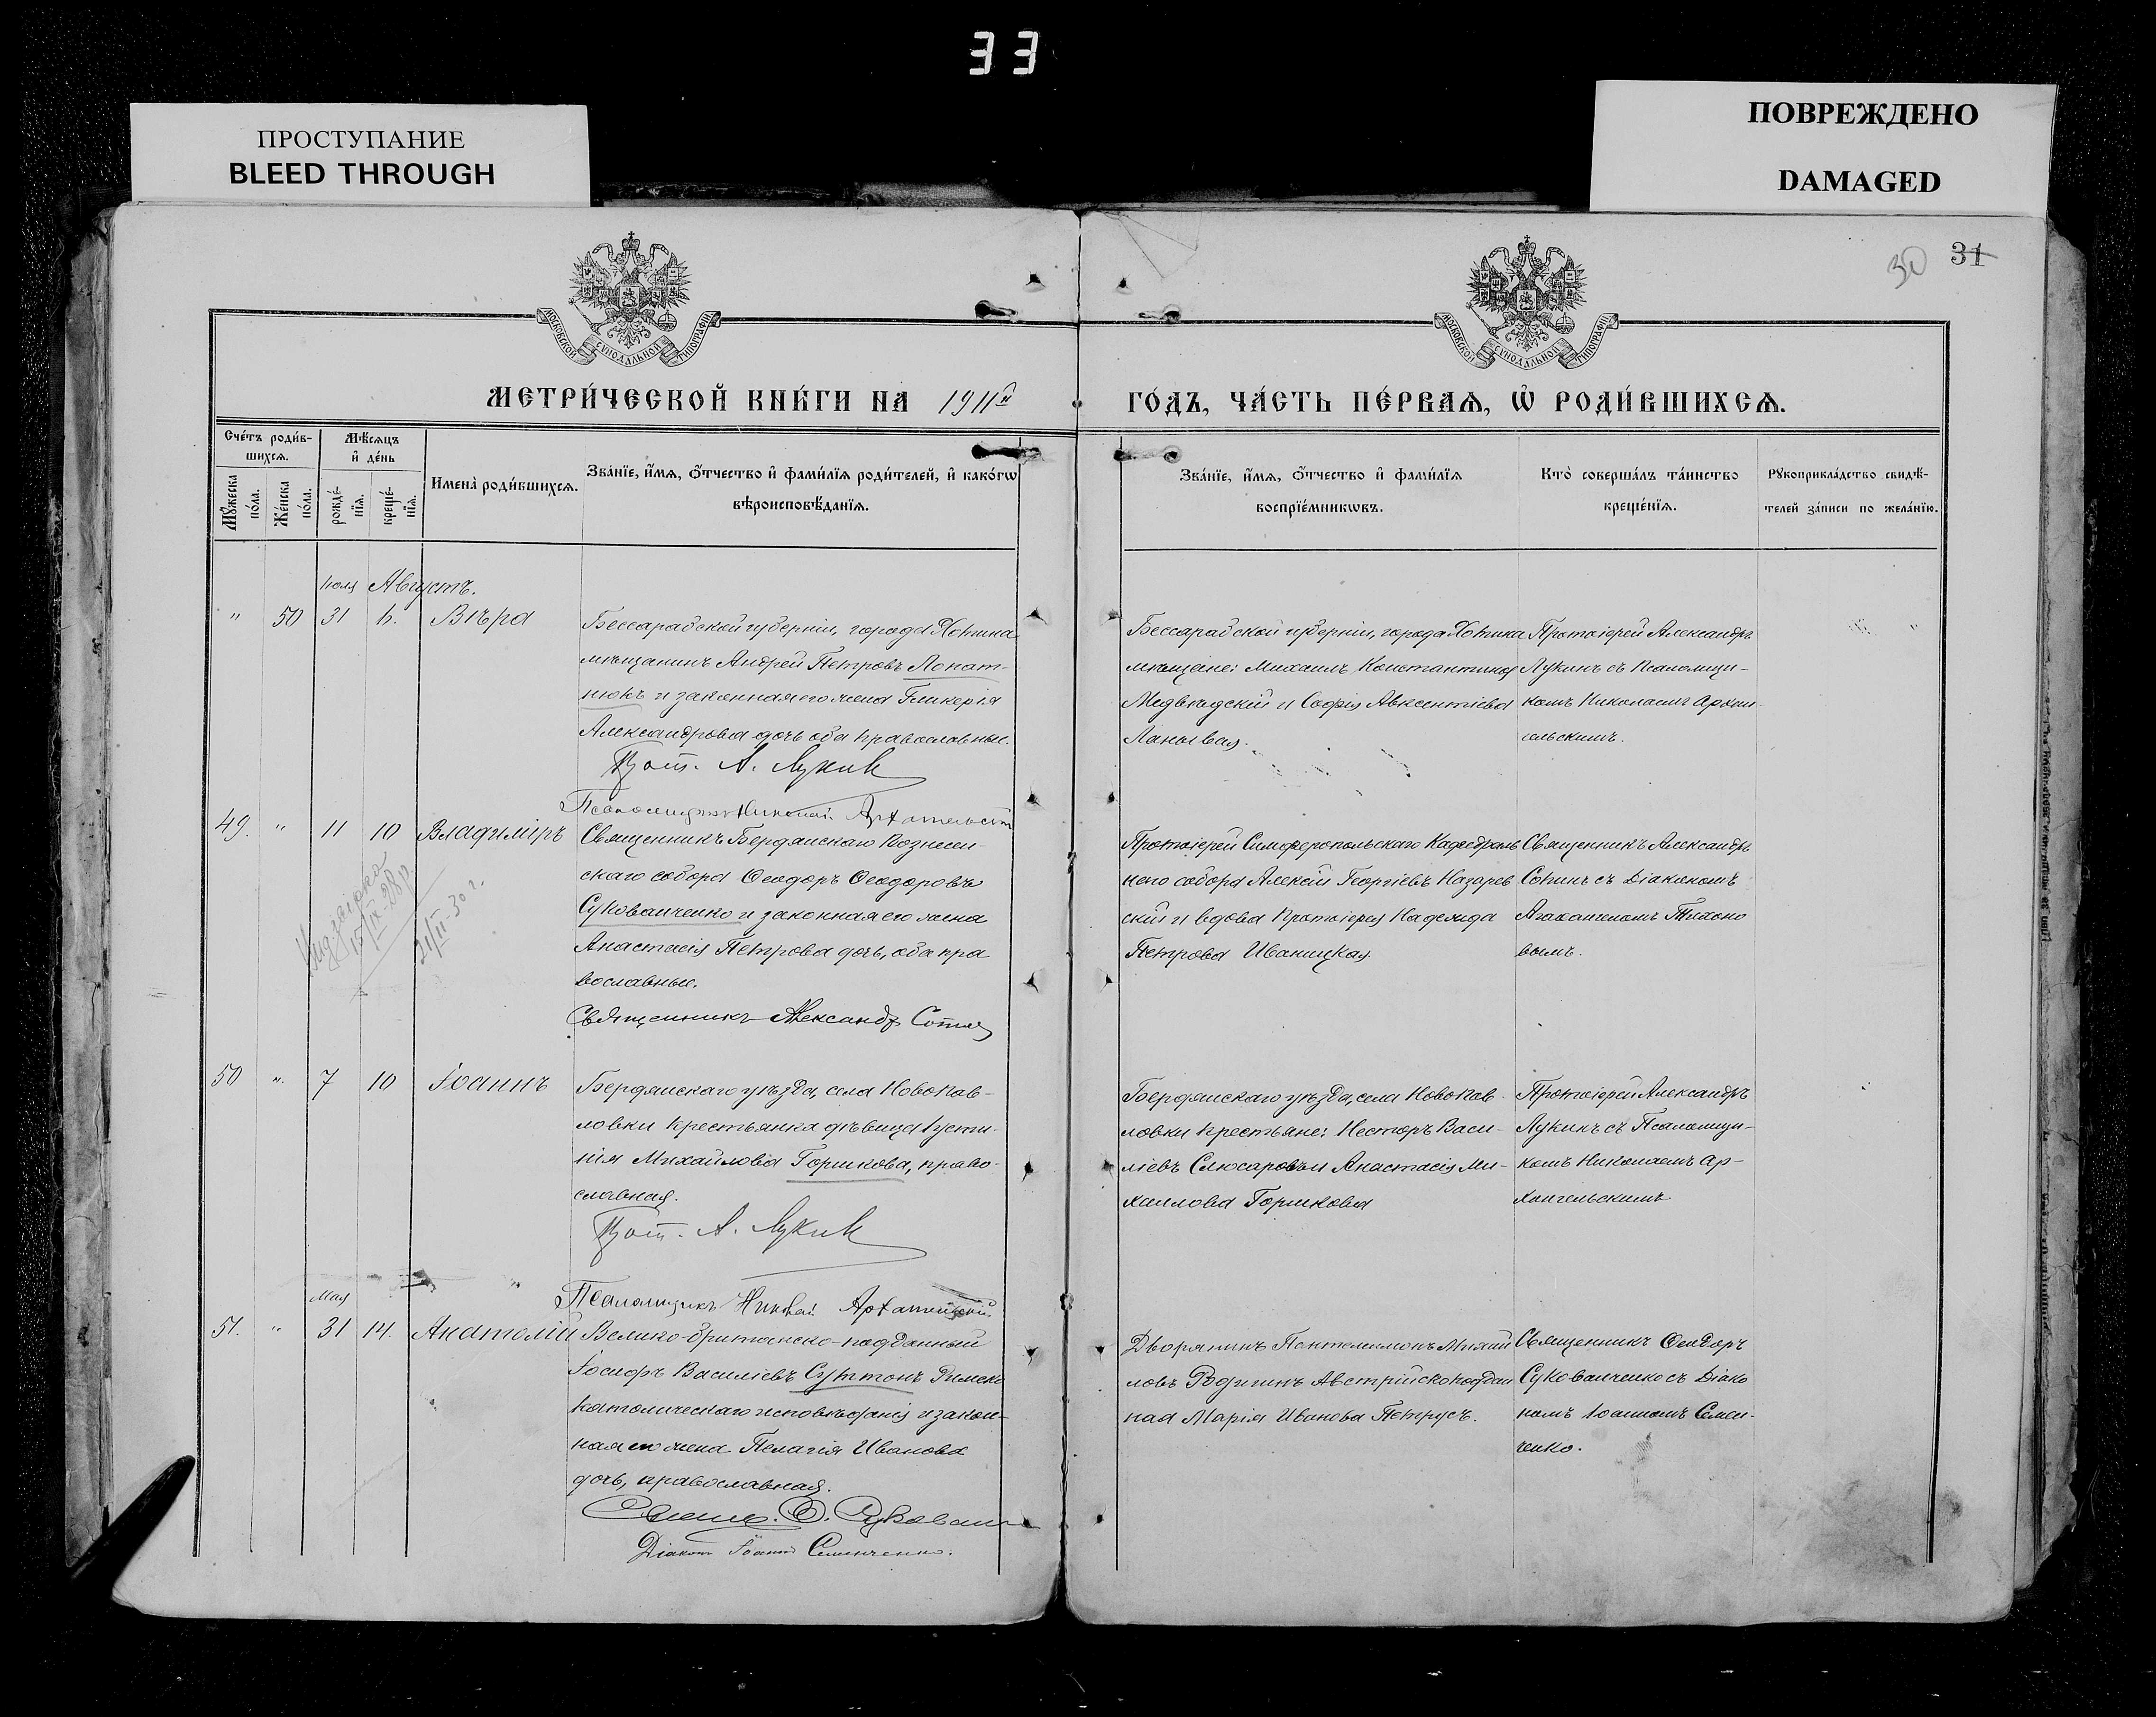 33
ПРОСТУПАНИЕ
BLEED THROUGH
ПОВРЕЖДЕНО
DAMAGED
30 31
МОСКОВСКОЙ СѴНОДАЛЬНОЙ ТИПОГРАФІИ
МОСКОВСКОЙ СѴНОДАЛЬНОЙ ТИПОГРАФІИ
МЕТРИ́ЧЕСКОЙ КНИ́ГИ НА 1911й
ГО́ДЪ, ЧА́СТЬ ПЕ́РВАѦ, Ѡ҆ РОДИ́ВШИХСѦ.
Сче́тъ роди́в-
шихсѧ.
Мѣ́сѧцъ
и҆ де́нь
Мꙋ́жеска
по́ла.
Же́нска
по́ла.
рожде́-
нїѧ.
креще́-
нїѧ.
Имена̀ роди́вшихсѧ.
Зва́нїе, и҆́мѧ, ѻ҆́тчество и҆ фами́лїѧ роди́телей, и҆ како́гѡ
вѣроисповѣ́данїѧ.
Зва́нїе, и҆́мѧ, ѻ҆́тчество и҆ фами́лїѧ
воспрїе́мникѡвъ.
Кто̀ соверша́лъ та́инство
креще́нїѧ.
Рꙋкоприкла́дство свидѣ́-
телей за́писи по жела́нїю.
Іюля Августъ.
" 50 31 6. Вѣра
Бессарабской губерніи, города Хотина
мѣщанинъ Андрей Петровъ Лопат-
нюкъ и законная его жена Гликерія
Александровна дочь оба православные.
Прот. А. Лукин
Псаломщикъ Николай Архангельскій
Бессарабской губерніи, города Хотина
мѣщане: Михаилъ Константиновъ
Медвѣдскій и Софія Авксентіева
Протоіерей Александръ
Лукинъ съ Псаломщи-
комъ Николаемъ Архан
гельскимъ.
49. " 11 10 Владиміръ
15/IX-28 г.
21/II-30 г.
Священникъ Бердянскаго Вознесен-
скаго собора Ѳеодоръ Ѳеодоровъ
Сукованченко и законная его жена
Анастасія Петрова дочь, оба пра
вославные.
Священникъ Александр Сотин
Протоіерей Симферопольскаго Кафедраль
наго собора Алексій Георгіевъ Назарев
скій и вдова Протоіерея Надежда
Петрова Иваницкая.
Священникъ Александръ
Сотинъ съ Діакономъ
Агаѳангеломъ Тихоно
вымъ.
50 ". 7 10 Іоаннъ
Бердянскаго уѣзда, села Новопав-
ловки крестьянка дѣвица Іусти-
нія Михайлова Горшкова, право-
славная.
Прот. А. Лукин
Псаломщикъ Николай Архангельскій
Бердянскаго уѣзда, села Новопав
ловки крестьяне: Несторъ Васи-
ліевъ Слюсаровъ и Анастасія Ми-
хаилова Горшкова
Протоіерей Александръ
Лукинъ съ Псаломщи-
комъ Николаемъ Ар-
хангельскимъ
Мая
51. " 31 14. Анатолій
Велико-британско-подданный
Іосифъ Василіевъ Суттонъ Римско
католическаго исповѣданія и закон-
ная его жена Пелагія Иванова
дочь, православная.
Свящ. Ѳ. Сукован
Діакон Іоанн Семенченко.
Дворянинъ Пантелимонъ Михаи
ловъ Родзинъ Австрійскоподдан
ная Марія Иванова Петрусъ.
Священникъ Ѳеодоръ
Сукованченко съ Діако
номъ Іоанномъ Семен-
ченко.